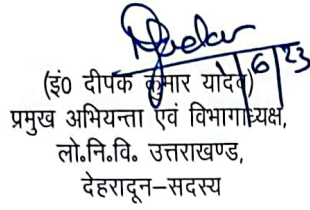 1/6/23
(इं० दीपक कुमार यादव)
प्रमुख अभियन्ता एवं विभागाध्यक्ष,
लो.नि.वि. उत्तराखण्ड,
देहरादून–सदस्य